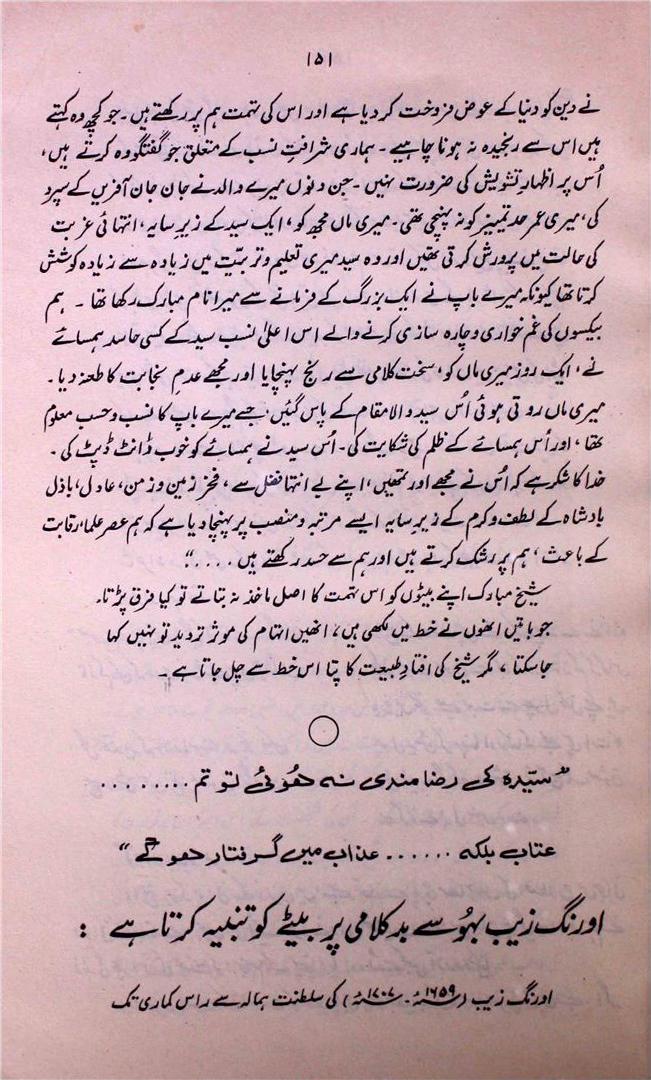 ۱۵۱
نے دین کو دنیا کے عوض فروخت کر دیا ہے اور اس کی تہمت ہم پر رکھتے ہیں۔ جو کچھ وہ کہتے
ہیں اس سے رنجیدہ نہ ہونا چاہیے۔ ہماری شرافتِ نسب کے متعلق جو گفتگو وہ کرتے ہیں،
اُس پر اظہارِ تشویش کی ضرورت نہیں۔ جن دنوں میرے والد نے جان جان آفریں کے سپرد
کی، میری عمر حدِ تمییز کو نہ پہنچی تھی۔ میری ماں مجھ کو، ایک سید کے زیرِ سایہ، انتہائی غربت
کی حالت میں پرورش کرتی تھیں اور وہ سید میری تعلیم و تربیّت میں زیادہ سے زیادہ کوشش
کرتا تھا کیونکہ میرے باپ نے ایک بزرگ کے فرمانے سے میرا نام مبارک رکھا تھا۔ ہم
بیکسوں کی غم خواری و چارہ سازی کرنے والے اس اعلیٰ نسب سید کے کسی حاسد ہمسائے
نے، ایک روز میری ماں کو، سخت کلامی سے رنج پہنچایا اور مجھے عدمِ نجابت کا طعنہ دیا۔
میری ماں روتی ہوئی اُس سیدِ والا مقام کے پاس گئیں، جسے میرے باپ کا نسب و حسب معلوم
تھا، اور اُس ہمسائے کے ظلم کی شکایت کی۔ اُس سید نے ہمسائے کو خوب ڈانٹ ڈپٹ کی۔
خدا کا شکر ہے کہ اُس نے مجھے اور تمھیں، اپنے بے انتہا فضل سے، فخرِ زمین و زمن، عادل، باذل
بادشاہ کے لطف و کرم کے زیرِ سایہ ایسے مرتبہ و منصب پر پہنچا دیا ہے کہ ہم عصر علماء، رقابت
کے باعث، ہم پر رشک کرتے ہیں اور ہم سے حسد رکھتے ہیں ....“
شیخ مبارک اپنے بیٹوں کو اس تہمت کا اصل ماخذ نہ بتاتے تو کیا فرق پڑتا۔
جو باتیں انھوں نے خط میں لکھی ہیں، انھیں اتہام کی موثر تردید تو نہیں کہا
جا سکتا، مگر شیخ کی افتادِ طبیعت کا پتا اس خط سے چل جاتا ہے۔
”سیّدہ کی رضامندی نہ ھُوئی تو تم ........
عتاب بلکہ ...... عذاب میں گرفتار ھو گے“
اورنگ زیب بہُو سے بدکلامی پر بیٹے کو تنبیہ کرتا ہے :
اورنگ زیب (۱۶۵۹ء - ۱۷۰۷ء) کی سلطنت ہمالہ سے راس کماری تک